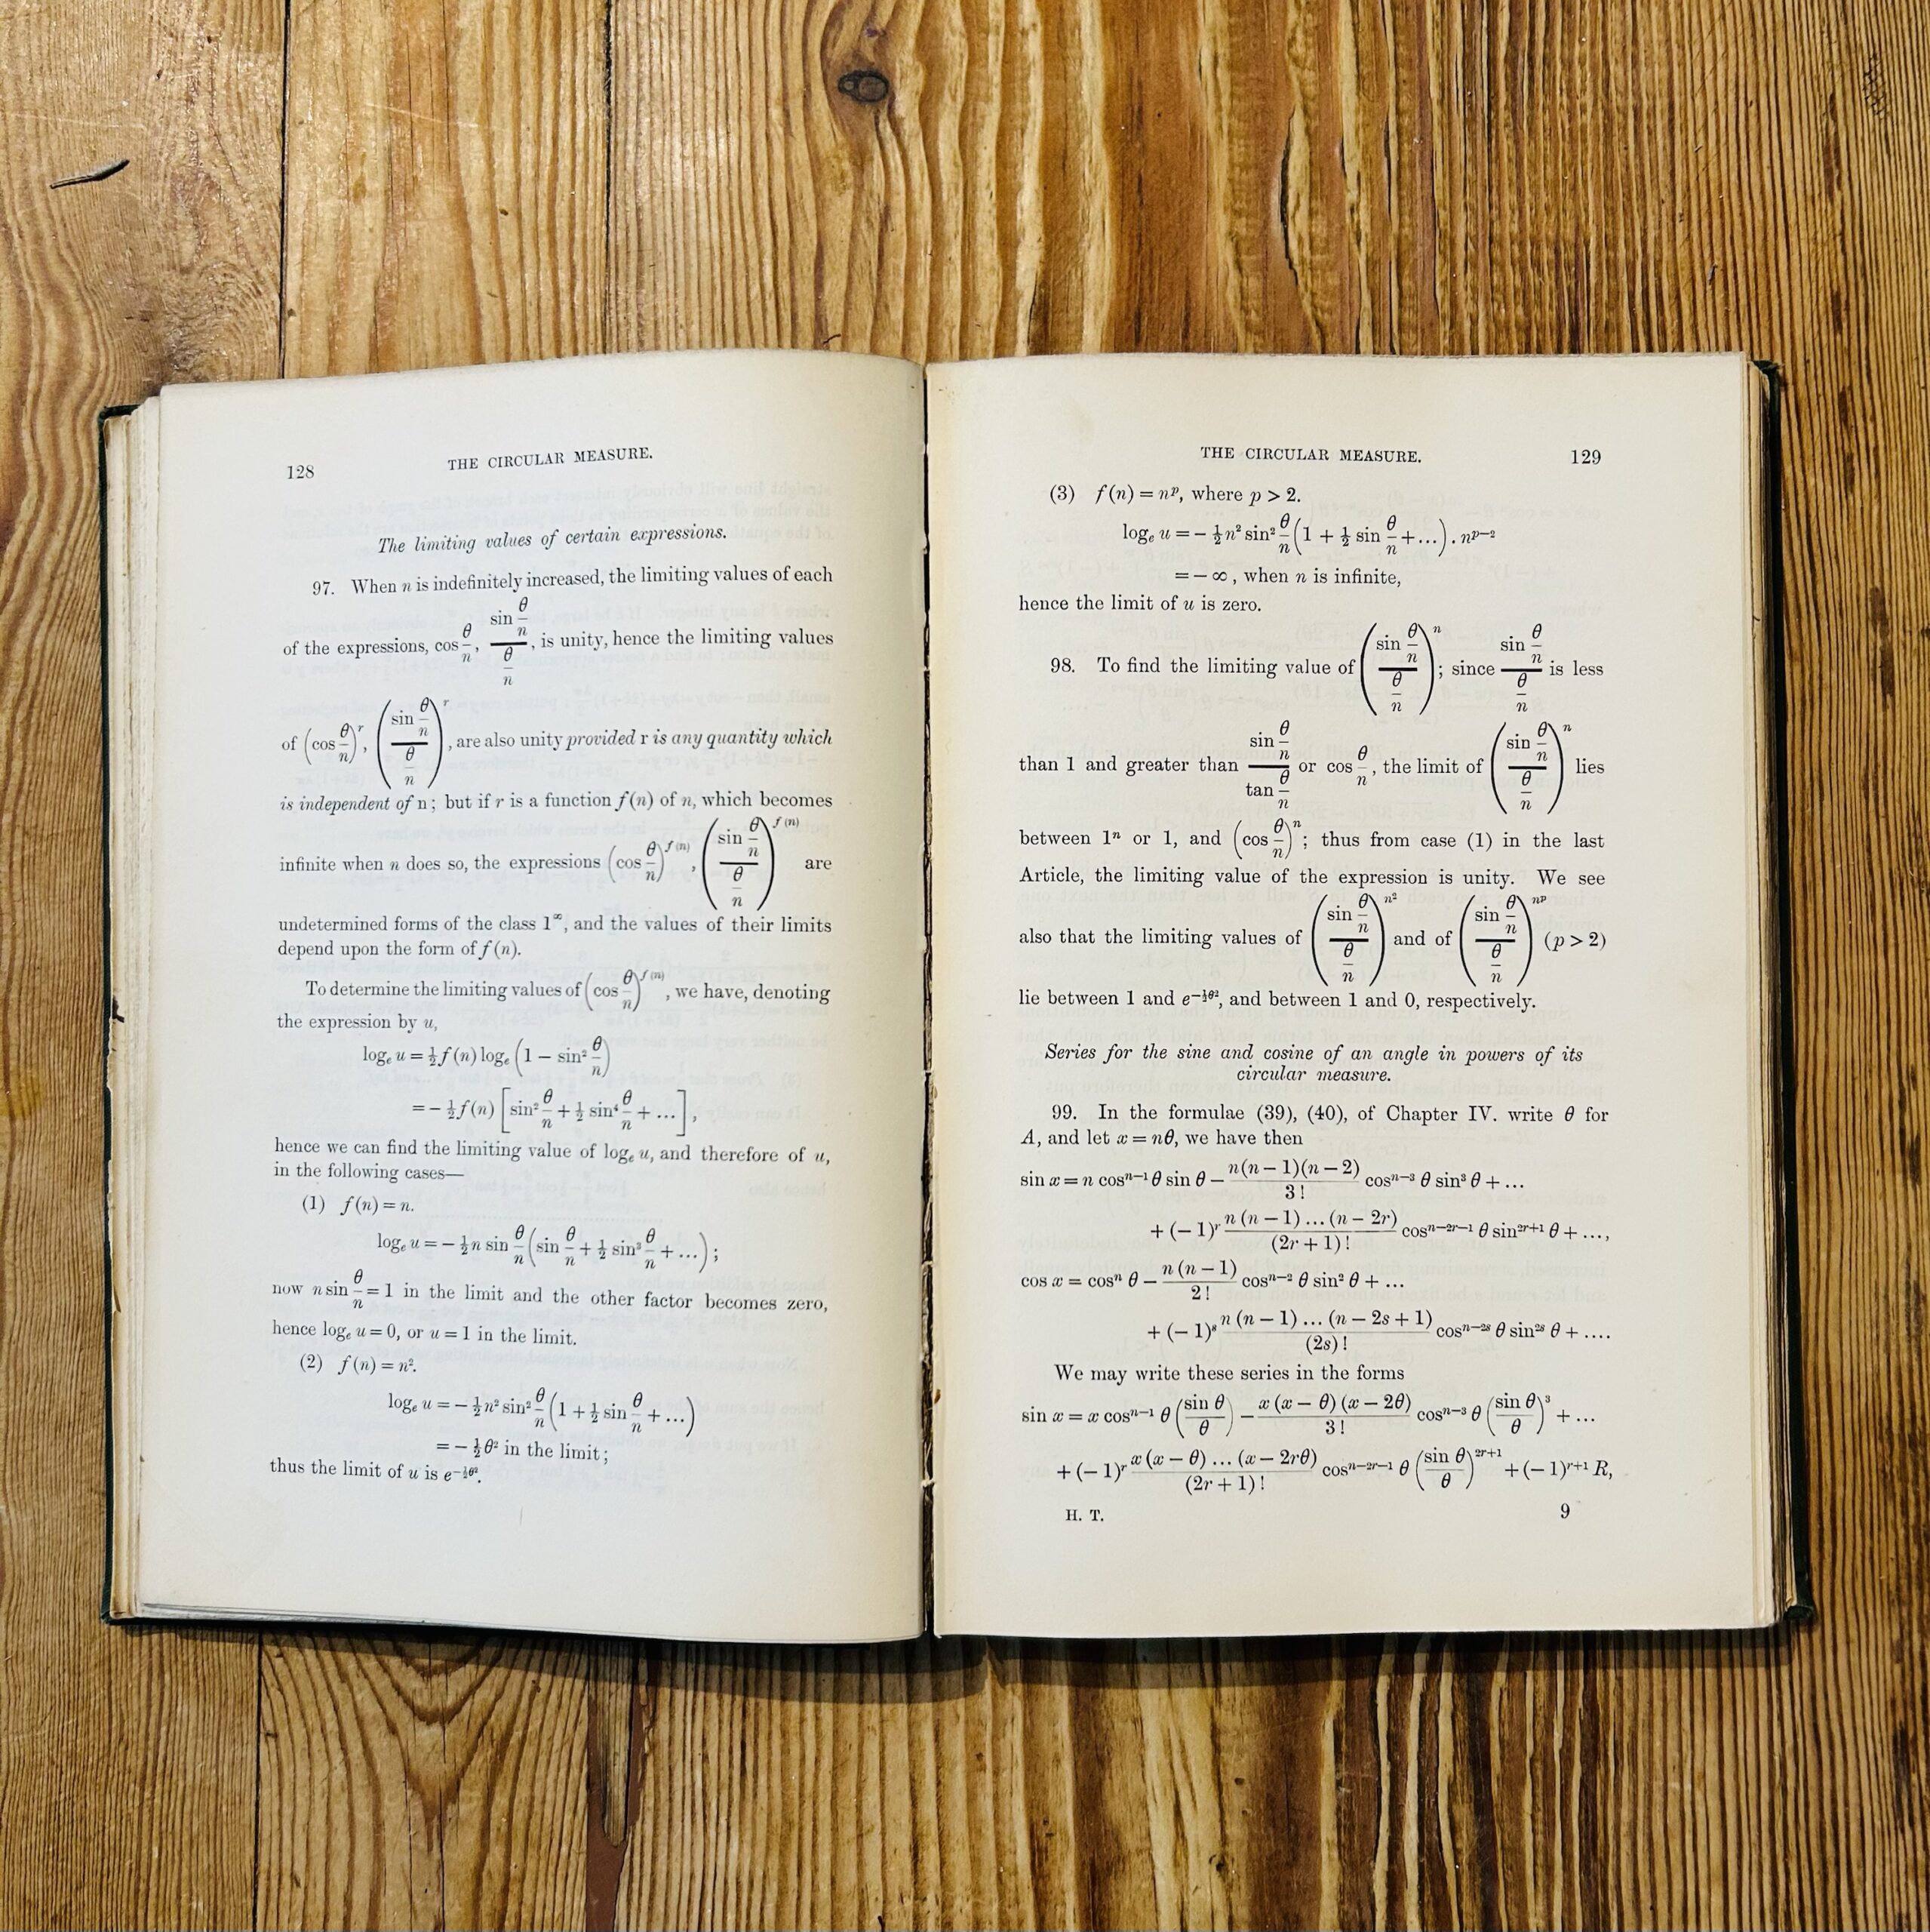 128
THE CIRCULAR MEASURE.
The limiting values of certain expressions.
97. When n is indefinitely increased, the limiting values of each
of the expressions, cos θ/n, (sin θ/n)/(θ/n), is unity, hence the limiting values
of (cos θ/n)^r, ((sin θ/n)/(θ/n))^r, are also unity provided r is any quantity which
is independent of n; but if r is a function f(n) of n, which becomes
infinite when n does so, the expressions (cos θ/n)^f(n), ((sin θ/n)/(θ/n))^f(n) are
undetermined forms of the class 1^∞, and the values of their limits
depend upon the form of f(n).
To determine the limiting values of (cos θ/n)^f(n), we have, denoting
the expression by u,
logₑ u = ½ f(n) logₑ (1 − sin² θ/n)
= − ½ f(n) [sin² θ/n + ½ sin⁴ θ/n + ...],
hence we can find the limiting value of logₑ u, and therefore of u,
in the following cases—
(1) f(n) = n.
logₑ u = − ½ n sin θ/n (sin θ/n + ½ sin³ θ/n + ...);
now n sin θ/n = 1 in the limit and the other factor becomes zero,
hence logₑ u = 0, or u = 1 in the limit.
(2) f(n) = n².
logₑ u = − ½ n² sin² θ/n (1 + ½ sin θ/n + ...)
= − ½ θ² in the limit;
thus the limit of u is e^(−½θ²).
THE CIRCULAR MEASURE.
129
(3) f(n) = n^p, where p > 2.
logₑ u = − ½ n² sin² θ/n (1 + ½ sin θ/n + ...) . n^(p−2)
= − ∞, when n is infinite,
hence the limit of u is zero.
98. To find the limiting value of ((sin θ/n)/(θ/n))^n; since (sin θ/n)/(θ/n) is less
than 1 and greater than (sin θ/n)/(tan θ/n) or cos θ/n, the limit of ((sin θ/n)/(θ/n))^n lies
between 1^n or 1, and (cos θ/n)^n; thus from case (1) in the last
Article, the limiting value of the expression is unity. We see
also that the limiting values of ((sin θ/n)/(θ/n))^n² and of ((sin θ/n)/(θ/n))^n^p (p > 2)
lie between 1 and e^(−½θ²), and between 1 and 0, respectively.
Series for the sine and cosine of an angle in powers of its
circular measure.
99. In the formulae (39), (40), of Chapter IV. write θ for
A, and let x = nθ, we have then
sin x = n cos^(n−1) θ sin θ − n(n−1)(n−2)/3! cos^(n−3) θ sin³ θ + ...
+ (−1)^r n(n−1)...(n−2r)/(2r+1)! cos^(n−2r−1) θ sin^(2r+1) θ + ...,
cos x = cos^n θ − n(n−1)/2! cos^(n−2) θ sin² θ + ...
+ (−1)^s n(n−1)...(n−2s+1)/(2s)! cos^(n−2s) θ sin^(2s) θ + ....
We may write these series in the forms
sin x = x cos^(n−1) θ (sin θ/θ) − x(x−θ)(x−2θ)/3! cos^(n−3) θ (sin θ/θ)³ + ...
+ (−1)^r x(x−θ)...(x−2rθ)/(2r+1)! cos^(n−2r−1) θ (sin θ/θ)^(2r+1) + (−1)^(r+1) R,
H. T.
9